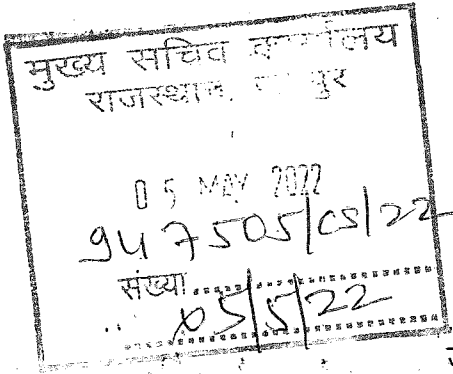 मुख्य सचिव कार्यालय
राजस्थान, जयपुर
05 MAY 2022
947505/CS/22
संख्या
05/5/22